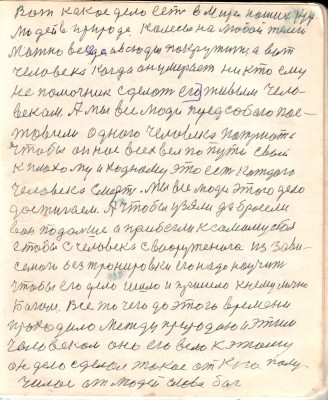 Вот какое дело есть в Мире нашем
Людей в природе Колесы на любой
Можно всегда всюду покрутить, а вот
человека когда он умерает никто ему
не помочник сделать его живым чело-
векам. А мы все люди перед собаю пос-
тавили одного человека
чтобы он нас всех вел по пути свой
к плохому и ходному это есть каждого
человека смерть. Мы все люди этого дело
достигаем. А чтобы узяли да бросели
и прибегли к самому себя
чтобы с человека сваоруженога из зави-
семого без тронировки его надо научить
чтобы его дело шло и пришло к нему лично
Багом. Все то чего до этого времени
проходило между природаю и этим
человеком оно его вело к этому
он дело сделал такое от Кого полу-
чилое от людей слова бог